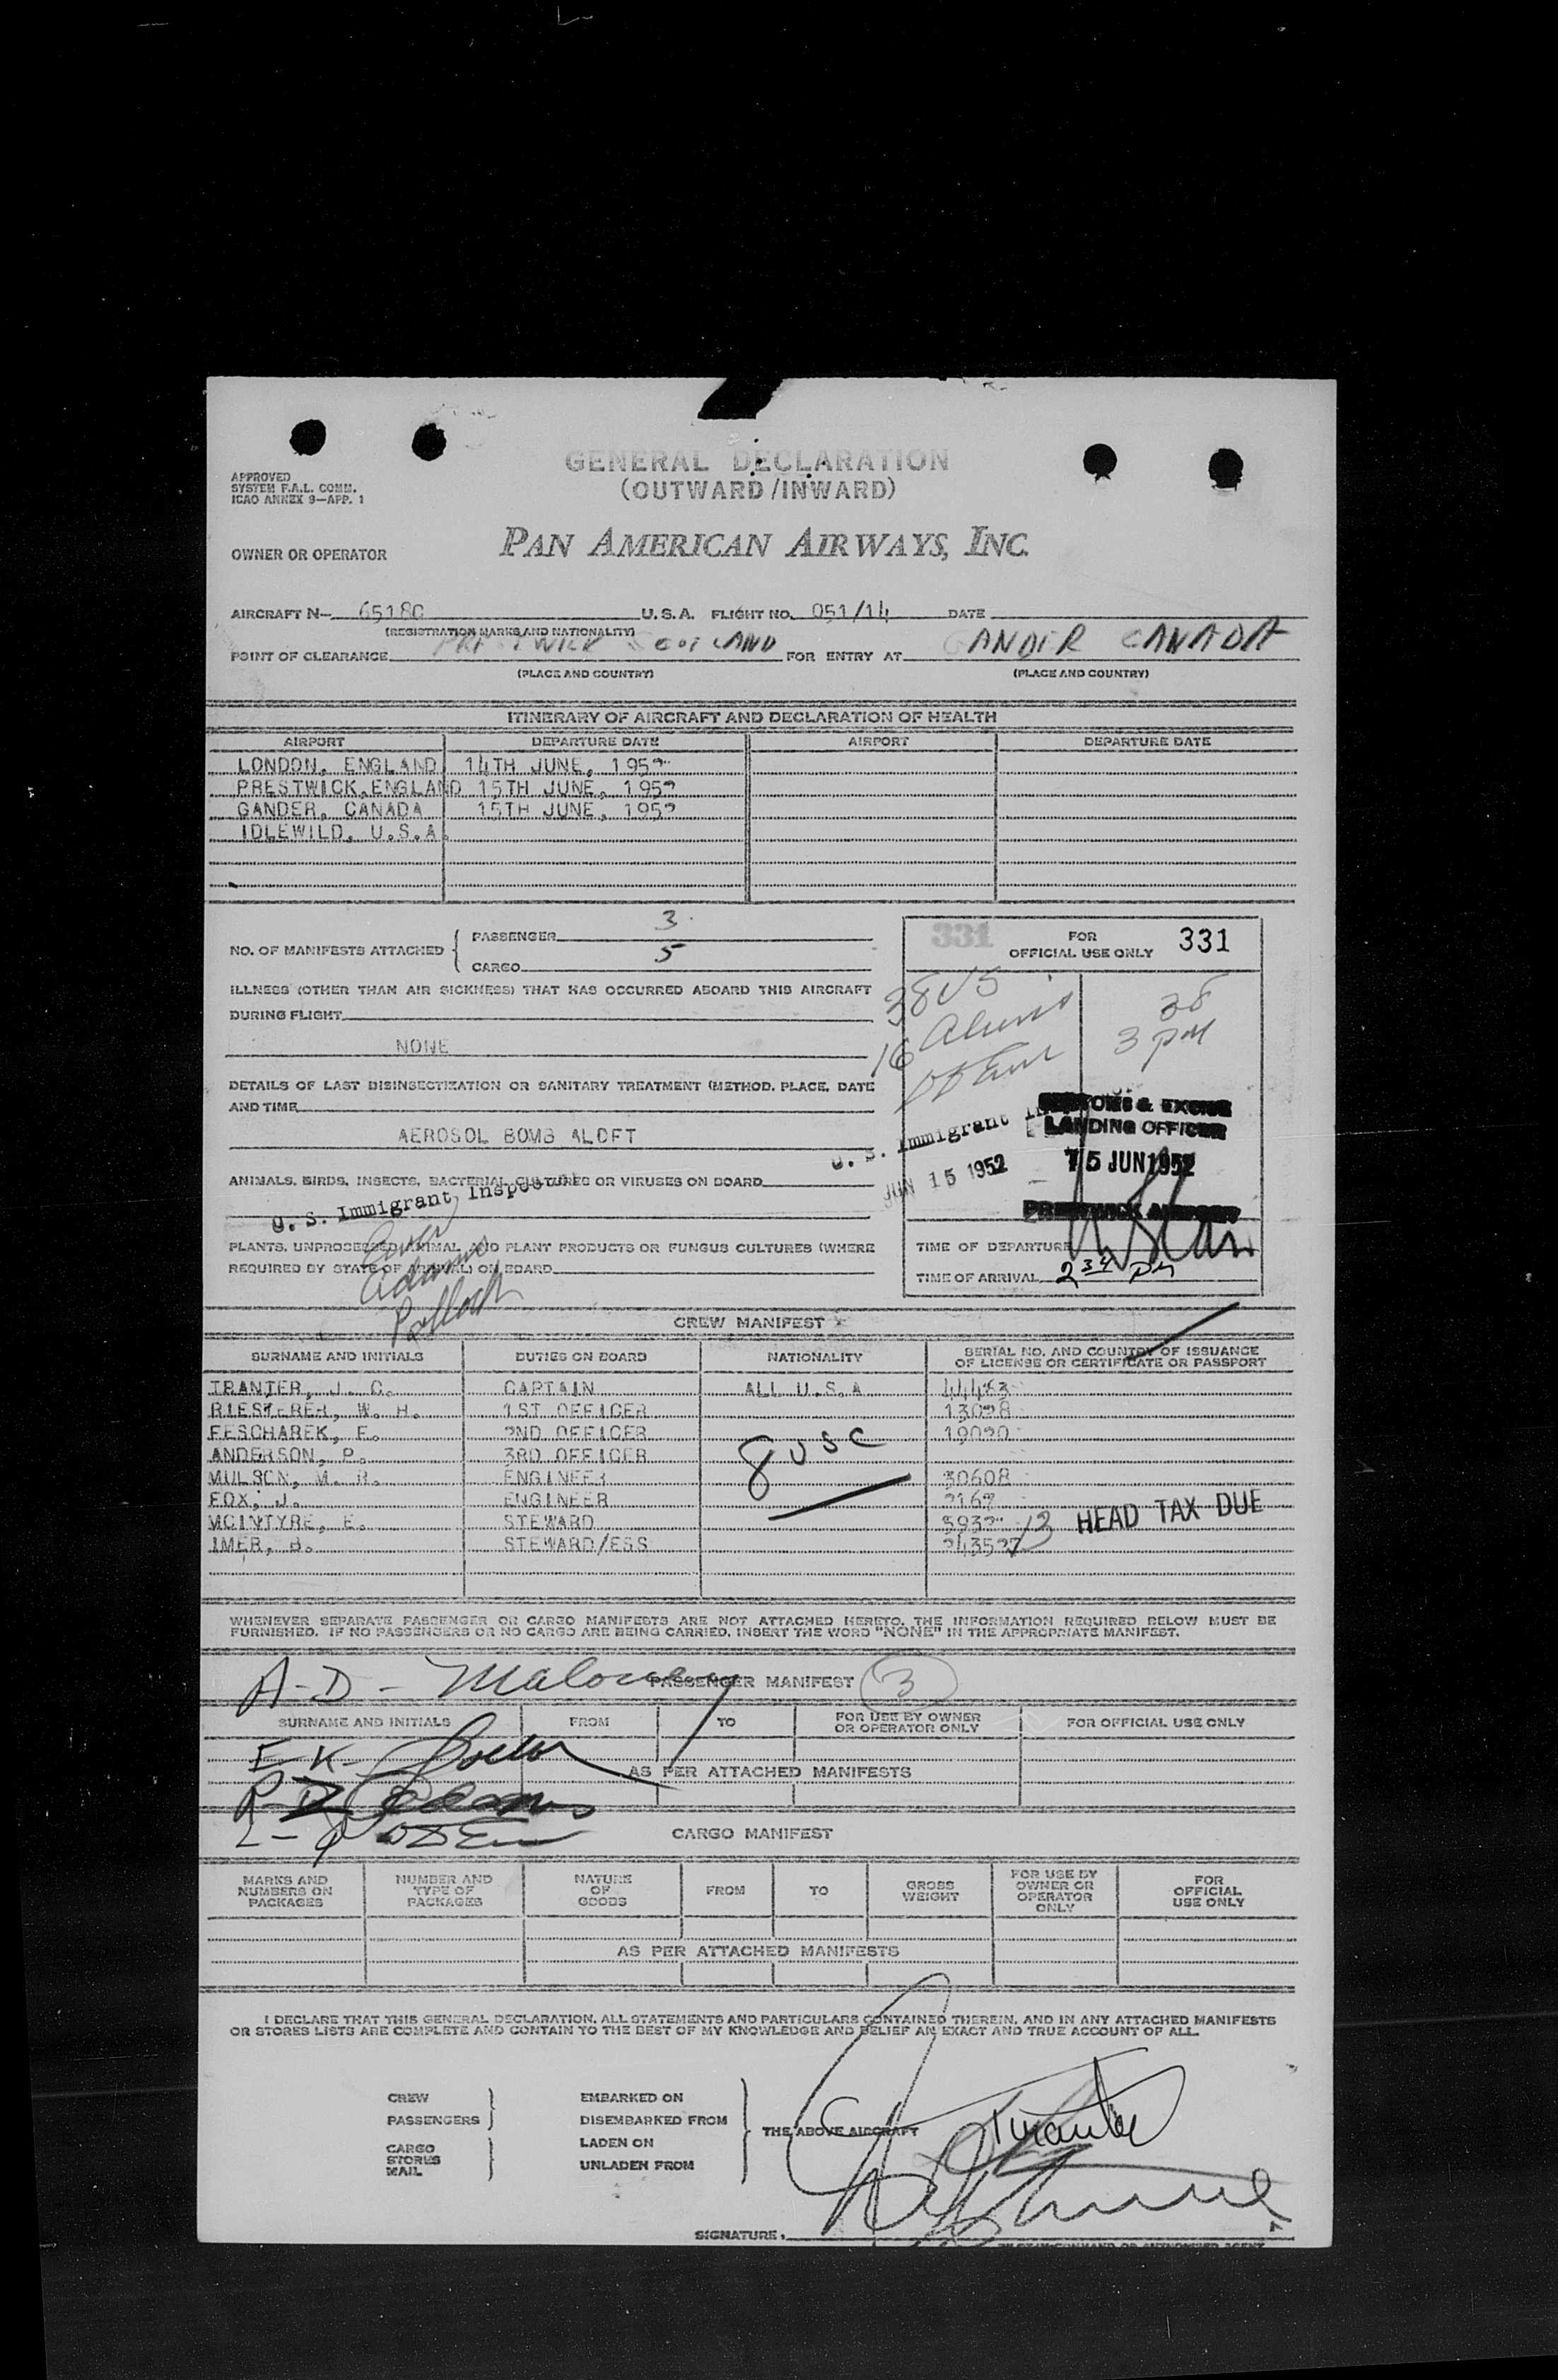 GENERAL DECLARATION
(OUTWARD/INWARD)
APPROVED
SYSTEM F.A.L. COMM.
ICAO ANNEX 9—APP. 1
OWNER OR OPERATOR
PAN AMERICAN AIRWAYS, INC.
AIRCRAFT N— 6518C U.S.A. FLIGHT NO. 051/14 DATE
(REGISTRATION MARKS AND NATIONALITY)
POINT OF CLEARANCE PRESTWICK SCOTLAND FOR ENTRY AT GANDER CANADA
(PLACE AND COUNTRY) (PLACE AND COUNTRY)
ITINERARY OF AIRCRAFT AND DECLARATION OF HEALTH
AIRPORT DEPARTURE DATE AIRPORT DEPARTURE DATE
LONDON, ENGLAND 14TH JUNE, 1952
PRESTWICK, ENGLAND 15TH JUNE, 1952
GANDER, CANADA 15TH JUNE, 1952
IDLEWILD, U.S.A.
NO. OF MANIFESTS ATTACHED
PASSENGER 3
CARGO 5
331 FOR OFFICIAL USE ONLY 331
ILLNESS (OTHER THAN AIR SICKNESS) THAT HAS OCCURRED ABOARD THIS AIRCRAFT
DURING FLIGHT
NONE
38 US
16
38
3 PM
DETAILS OF LAST DISINSECTIZATION OR SANITARY TREATMENT (METHOD, PLACE, DATE
AND TIME
AEROSOL BOMB ALOFT
U. S. Immigrant
JUN 15 1952
CUSTOMS & EXCISE
LANDING OFFICER
15 JUN 1952
PRESTWICK AIRPORT
ANIMALS, BIRDS, INSECTS, BACTERIAL CULTURES OR VIRUSES ON BOARD
U. S. Immigrant Inspector
PLANTS, UNPROCESSED ANIMAL AND PLANT PRODUCTS OR FUNGUS CULTURES (WHERE
REQUIRED BY STATE OF ARRIVAL) ON BOARD
Adams
TIME OF DEPARTURE
TIME OF ARRIVAL 2 34 PM
CREW MANIFEST
SURNAME AND INITIALS DUTIES ON BOARD NATIONALITY SERIAL NO. AND COUNTRY OF ISSUANCE
OF LICENSE OR CERTIFICATE OR PASSPORT
TRANTER, J. C. CAPTAIN ALL U.S.A 44463
RIESTERER, W. H. 1ST OFFICER 13028
FESCHAREK, F. 2ND OFFICER 19020
ANDERSON, P. 3RD OFFICER
MULSON, M. R. ENGINEER 30608
FOX, J. ENGINEER 2167
MCINTYRE, E. STEWARD
IMER, B. STEWARD/ESS
8 USC
13 HEAD TAX DUE
WHENEVER SEPARATE PASSENGER OR CARGO MANIFESTS ARE NOT ATTACHED HERETO, THE INFORMATION REQUIRED BELOW MUST BE
FURNISHED. IF NO PASSENGERS OR NO CARGO ARE BEING CARRIED, INSERT THE WORD "NONE" IN THE APPROPRIATE MANIFEST.
A-D- Maloney PASSENGER MANIFEST 3
SURNAME AND INITIALS FROM TO FOR USE BY OWNER OR OPERATOR ONLY FOR OFFICIAL USE ONLY
E-K-
AS PER ATTACHED MANIFESTS
CARGO MANIFEST
MARKS AND NUMBERS ON PACKAGES NUMBER AND TYPE OF PACKAGES NATURE OF GOODS FROM TO GROSS WEIGHT FOR USE BY OWNER OR OPERATOR ONLY FOR OFFICIAL USE ONLY
AS PER ATTACHED MANIFESTS
I DECLARE THAT THIS GENERAL DECLARATION, ALL STATEMENTS AND PARTICULARS CONTAINED THEREIN, AND IN ANY ATTACHED MANIFESTS
OR STORES LISTS ARE COMPLETE AND CONTAIN TO THE BEST OF MY KNOWLEDGE AND BELIEF AN EXACT AND TRUE ACCOUNT OF ALL.
CREW EMBARKED ON
PASSENGERS DISEMBARKED FROM
THE ABOVE AIRCRAFT
CARGO LADEN ON
STORES
MAIL UNLADEN FROM
Tranter
SIGNATURE